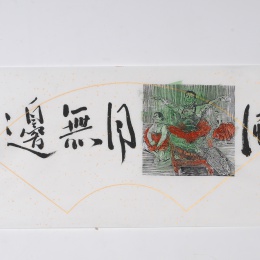 月無邊